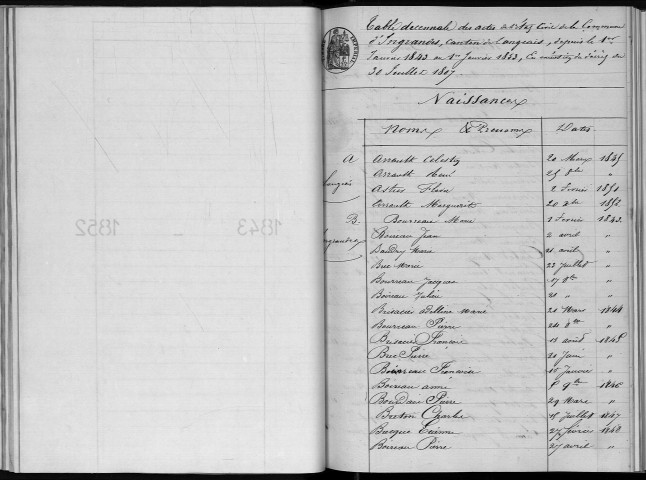 Table décennale des actes de l'état Civil de la Commune
d'Ingrandes, canton de Langeais, depuis le 1er
Janvier 1843 au 1er Janvier 1853, En exécution du décret du
30 Juillet 1807.
Naissances
Noms & Prénoms Dates
A Arrault Celeste 20 Mars 1845
Arrault 25 8bre "
Langeais Astier 2 Février 1850
Arrault Marguerite 20 1852
B. Bourreau Marie 1 Février 1843
Ingrandes Boireau Jean 2 avril "
Baudry Marie 21 août "
Brec Marie 23 Juillet "
Bourreau Jacques 17 8bre "
Boireau Julien 21 " "
Marie 21 Mars 1844
Bourreau Pierre 24 8bre "
François 13 août 1845
Brec Pierre 21 Juin "
Bourreau 15 Janvier "
Boireau 9bre 1846
Pierre 29 Mars "
Breton Charles 15 Juillet 1847
Etienne 25 février 1848
Boireau Pierre 27 avril "
1843 – 1852